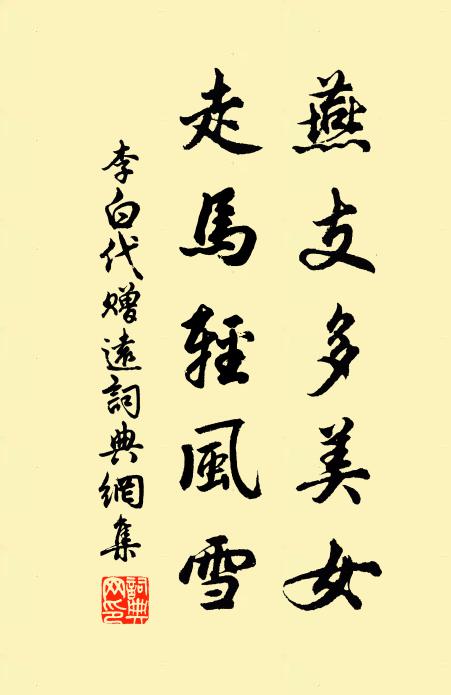 燕支多美女
走馬輕風雪
李白代贈遠詞典網集
詞典網印